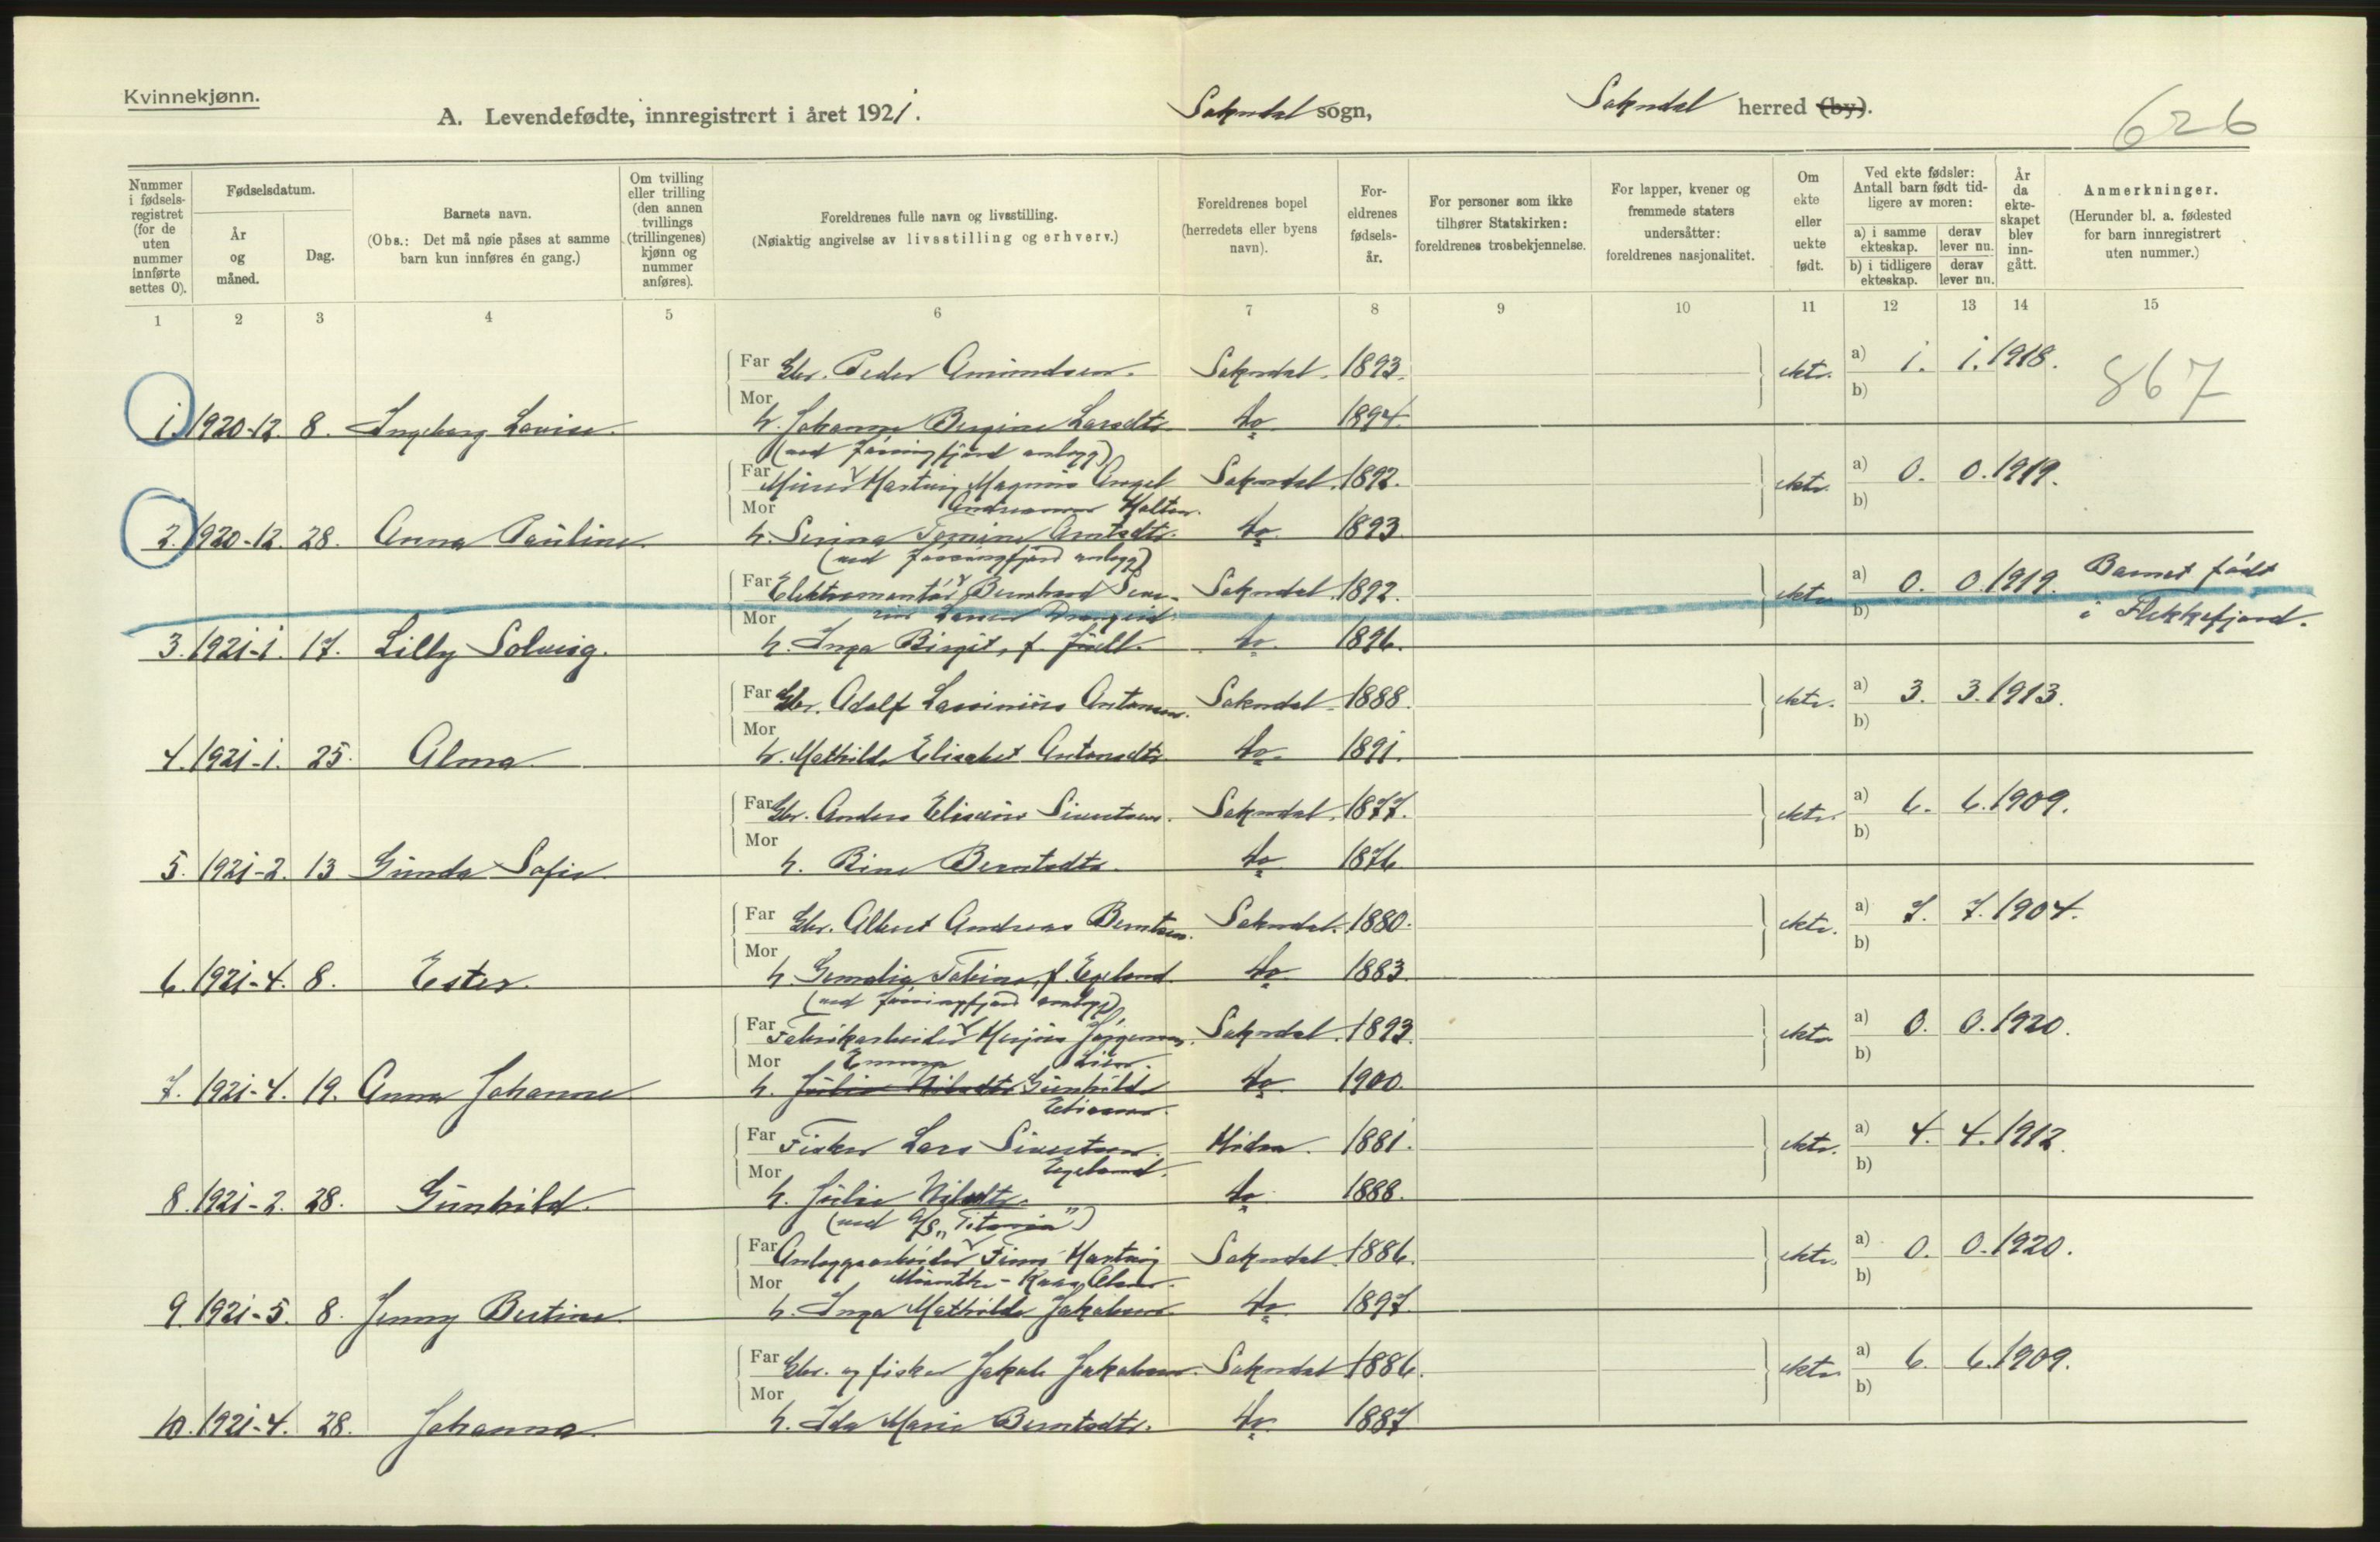 Kvinnekjønn.
A. Levendefødte, innregistrert i året 1921. Sokndal sogn, Sokndal herred (by).
626
Nummer i fødselsregistret (for de uten nummer innførte settes 0).
Fødselsdatum.
År og måned.
Dag.
Barnets navn.
(Obs.: Det må nøie påses at samme barn kun innføres én gang.)
Om tvilling eller trilling (den annen tvillings (trillingenes) kjønn og nummer anføres).
Foreldrenes fulle navn og livsstilling.
(Nøiaktig angivelse av livsstilling og erhverv.)
Foreldrenes bopel (herredets eller byens navn).
Foreldrenes fødselsår.
For personer som ikke tilhører Statskirken: foreldrenes trosbekjennelse.
For lapper, kvener og fremmede staters undersåtter: foreldrenes nasjonalitet.
Om ekte eller uekte født.
Ved ekte fødsler: Antall barn født tidligere av moren:
a) i samme ekteskap. derav lever nu.
b) i tidligere ekteskap. derav lever nu.
År da ekteskapet blev inngått.
Anmerkninger.
(Herunder bl. a. fødested for barn innregistrert uten nummer.)
1 2 3 4 5 6 7 8 9 10 11 12 13 14 15
Far Gbr. Peder Amundsen. Sokndal. 1893. ekte. a) 1. 1. 1918. 867
Mor b)
1. 1920-12. 8. Ingeborg Lovise. h. Johanne Bergine Larsdtr. do 1894.
(ved Jøssingfjord anlegg)
Far Minør Hartvig Magnus Angel Sokndal. 1892. ekte. a) 0. 0. 1919.
Mor Andreassen Holter. b)
2. 1920-12. 28. Anna Pauline. h. Serina Tomine Berntsdtr. do 1893.
(ved Jøssingfjord anlegg)
Far Elektromontør Bernhard Seve- Sokndal. 1892. ekte a) 0. 0. 1919. Barnet født
Mor rin Larsen Drangeid b) i Flekkefjord.
3. 1921-1. 17. Lilly Solveig. h. Inga Birgit, f. Juell. do. 1896.
Far Gbr. Adolf Lassinius Antonsen. Sokndal. 1888. ekte. a) 3. 3. 1913.
Mor b)
4. 1921-1. 25. Alma h. Mathilde Elisabet Antonsdtr. do 1891.
Far Gbr. Anders Eliseus Sivertsen. Sokndal. 1877. ekte. a) 6. 6. 1909.
Mor b)
5. 1921-2. 13 Gunda Sofie. h. Rine Berntsdtr. do 1876.
Far Gbr. Albert Andreas Berntsen. Sokndal. 1880. ekte. a) 7. 7. 1904.
Mor b)
6. 1921-4. 8. Ester. h. Gemalie Tobine, f. Egeland. do 1883.
(ved Jøssingfjord anlegg)
Far Fabrikarbeider Jørgensen. Sokndal. 1893. ekte a) 0. 0. 1920.
Mor Emma b)
7. 1921-4. 19. Anna Johanne h. Julie Nilsdtr. Gunhild do 1900.
Far Fisker Lars Sivertsen. Hidra. 1881. ekte. a) 4. 4. 1912.
Mor Egeland. b)
8. 1921-2. 28. Gunhild. h. Julie Nilsdtr. do 1888.
(ved A/S "Titania")
Far Anleggsarbeider Finn Hartvig Sokndal. 1886. ekte. a) 0. 0. 1920.
Mor Munthe-Kaas b)
9. 1921-5. 8. Jenny Bertine. h. Inga Mathilde Jakobsen do 1897.
Far Gbr. og fisker Jakob Jakobsen. Sokndal 1886. ekte a) 6 6. 1909.
Mor b)
10. 1921-4. 28. Johanna. h. Ida Marie Berntsdtr. do 1887